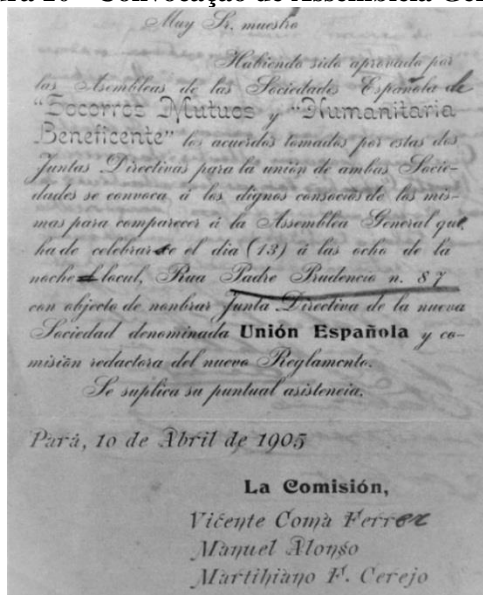 Muy Sr. nuestro
Habiendo sido aprovado por
las Asembleas de las Sociedades Española de
"Socorros Mutuos y "Humanitaria
Beneficente" los acuerdos tomados por estas dos
Juntas Directivas para la unión de ambas Socie-
dades se convoca á los dignos consocios de las mis-
mas para comparecer á la Assemblea General que
ha de celebrarse el dia (13) á las ocho de la
noche local, Rua Padre Prudencio n. 87
con objecto de nonbrar Junta Directiva de la nueva
Sociedad denominada Unión Española y co-
misión redactora del nuevo Reglamento.
Se suplica su puntual asistencia.
Pará, 10 de Abril de 1905
La Comisión,
Vicente Comà Ferrer
Manuel Alonso
Martihiano F. Cerejo